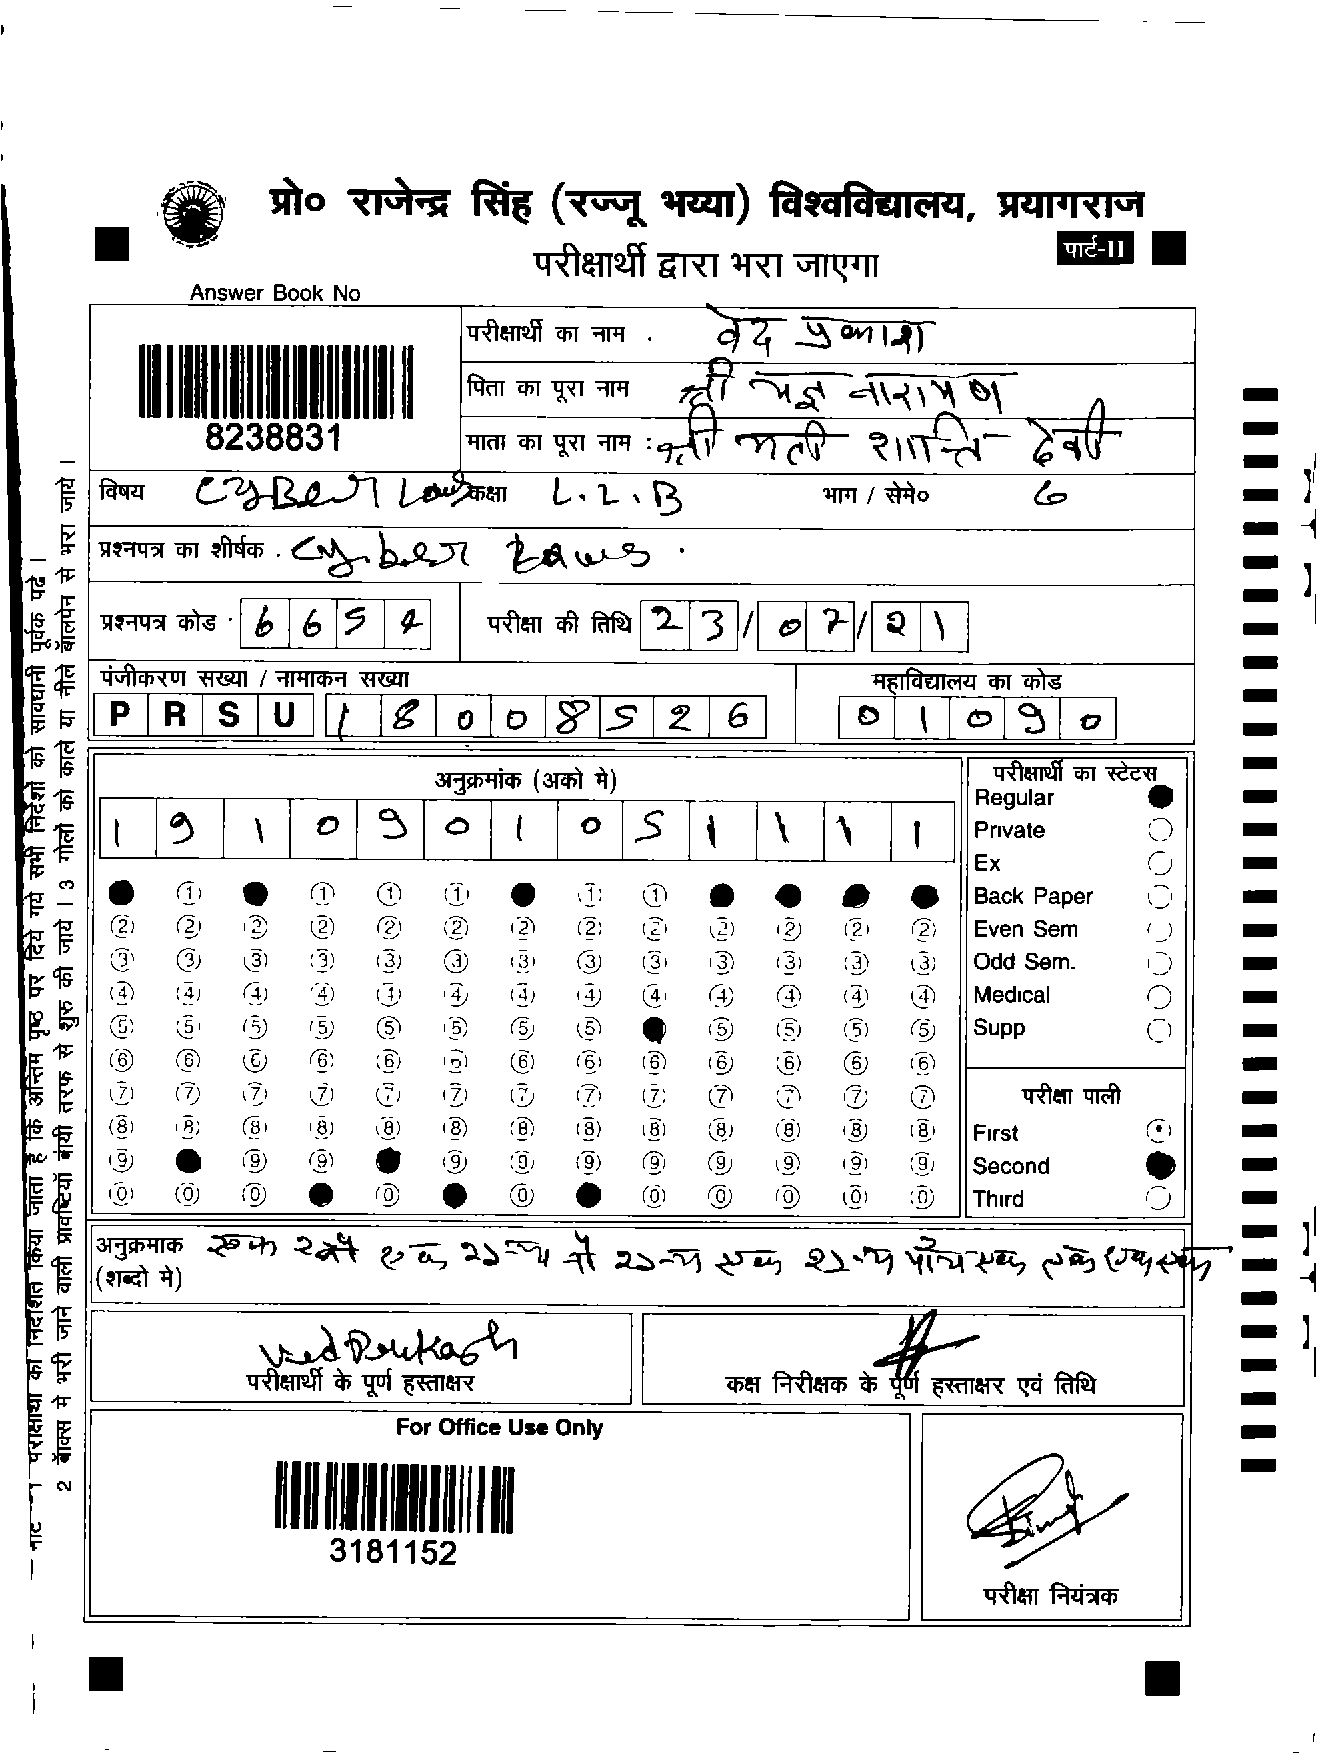 प्रो० राजेन्द्र सिंह (रज्जू भय्या) विश्वविद्यालय, प्रयागराज
पार्ट-II
परीक्षार्थी द्वारा भरा जाएगा
Answer Book No
8238831
परीक्षार्थी का नाम . वेद प्रकाश
पिता का पूरा नाम श्री यज्ञ नारायण
माता का पूरा नाम : श्री मती शान्ति देवी
विषय CYBER Law कक्षा L.L.B भाग / सेमे० 6
प्रश्नपत्र का शीर्षक . Cyber Laws .
प्रश्नपत्र कोड 6654 परीक्षा की तिथि 23/07/21
पंजीकरण सख्या / नामाकन सख्या
PRSU 18008526
महाविद्यालय का कोड
01090
अनुक्रमांक (अको मे)
1 9 1 0 9 0 1 0 5 1 1 1 1
परीक्षार्थी का स्टेटस
Regular
Private
Ex
Back Paper
Even Sem
Odd Sem.
Medical
Supp
परीक्षा पाली
First
Second
Third
अनुक्रमाक एक नौ एक शून्य नौ शून्य एक शून्य पाँच एक एक एक एक
(शब्दो मे)
Ved Prakash
परीक्षार्थी के पूर्ण हस्ताक्षर
कक्ष निरीक्षक के पूर्ण हस्ताक्षर एवं तिथि
For Office Use Only
3181152
परीक्षा नियंत्रक
परीक्षार्थी को निर्देशित किया जाता है कि अन्तिम पृष्ठ पर दिये गये सभी निर्देशो को सावधानी पूर्वक पढे ।
2 बॅाक्स मे भरी जाने वाली प्रविष्टियाँ बायी तरफ से शुरु की जाये । 3 गोलो को काले या नीले बॅालपेन से भरा जाये ।